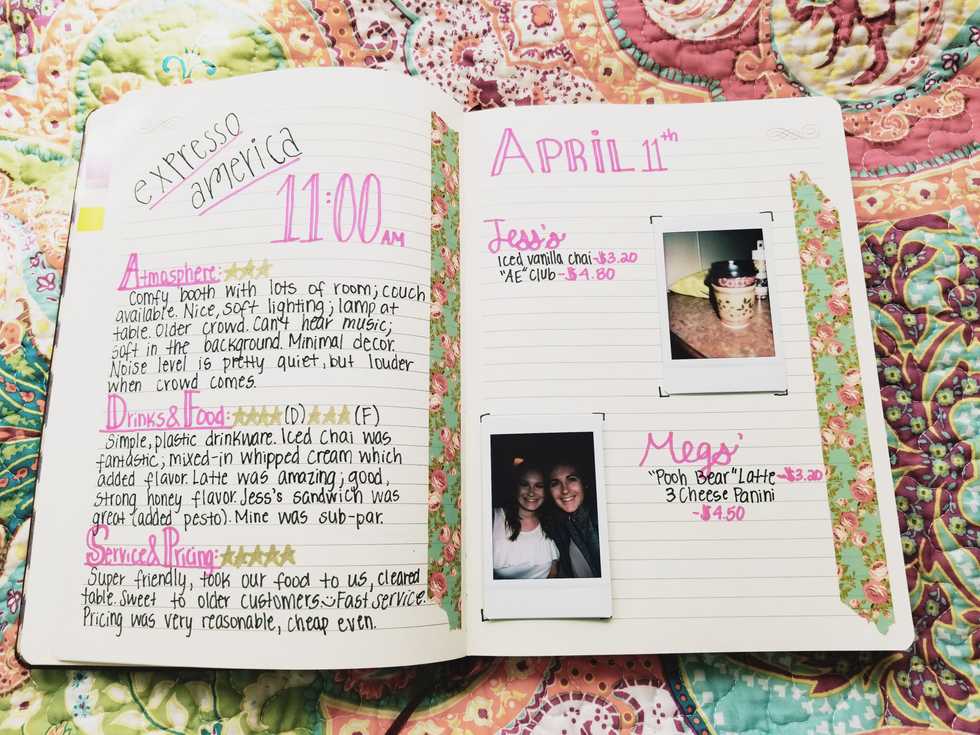 expresso
america
11:00 AM
Atmosphere:
Comfy booth with lots of room; couch
available. Nice, soft lighting; lamp at
table. Older crowd. Can't hear music;
soft in the background. Minimal decor.
Noise level is pretty quiet, but louder
when crowd comes.
Drinks & Food: (D) (F)
Simple, plastic drinkware. Iced Chai was
fantastic; mixed-in whipped cream which
added flavor. Latte was amazing; good,
strong honey flavor. Jess's sandwich was
great (added pesto). Mine was sub-par.
Service & Pricing:
Super friendly, took our food to us, cleared
table. Sweet to older customers. Fast service.
Pricing was very reasonable, cheap even.
APRIL 11th
Jess's
Iced vanilla chai-$3.20
"AE" Club-$4.80
Megs'
"Pooh Bear" Latte-$3.20
3 Cheese Panini
-$4.50